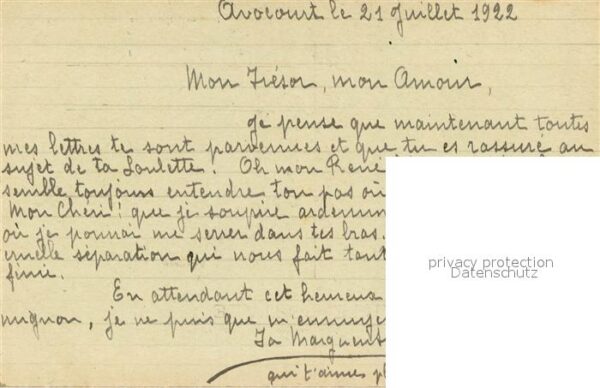 Avocourt le 21 Juillet 1922
Mon Trésor, mon Amour,
Je pense que maintenant toutes
mes lettres te sont parvenues et que tu es rassuré au
sujet de ta Loulette. Oh mon René
semble toujours entendre ton pas où
Mon Chéri! que je soupire
où je pourrai me serrer dans tes bras.
cruelle séparation qui nous fait tant
finie.
privacy protection
Datenschutz
En attendant cet heureux
mignon, je ne puis que
Ta
qui t'aimes